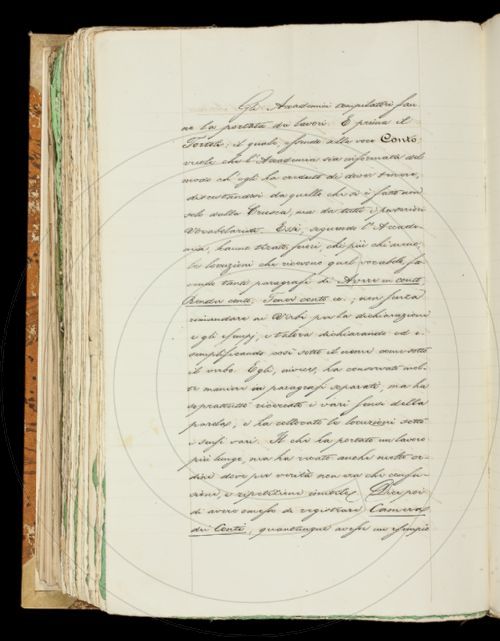 Gli Accademici compilatori fan-
no la portata dei lavori. E prima il
Tortoli; il quale, essendo alla voce Conto,
vuole che l'Accademia sia informata del
modo ch'egli ha creduto di dover tenere,
discostandosi da quello che si è fatto non
solo dalla Crusca, ma da tutti i posteriori
Vocabolaristi. Essi, seguendo l'Accade-
mia, hanno tirato fuori, chi più chi meno,
le locuzioni che ricevono quel vocabolo, fa-
cendo tanti paragrafi di Avere in conto,
Render conto, Tener conto ec.; non senza
rimandare ai Verbi per la dichiarazione
e gli esempj, e talora dichiarando ed e-
semplificando così sotto il nome come sotto
il verbo. Egli, invece, ha conservato mol-
te maniere in paragrafi separati, ma ha
soprattutto ricercato i vari sensi della
parola, e ha collocato le locuzioni sotto
i sensi vari. Il che ha portato un lavoro
più lungo, ma ha recato anche molto or-
dine dove per verità non era che confu-
sione, e ripetizioni inutili. Dice poi
di avere omesso di registrare Camera
dei Conti, quantunque avesse un esempio